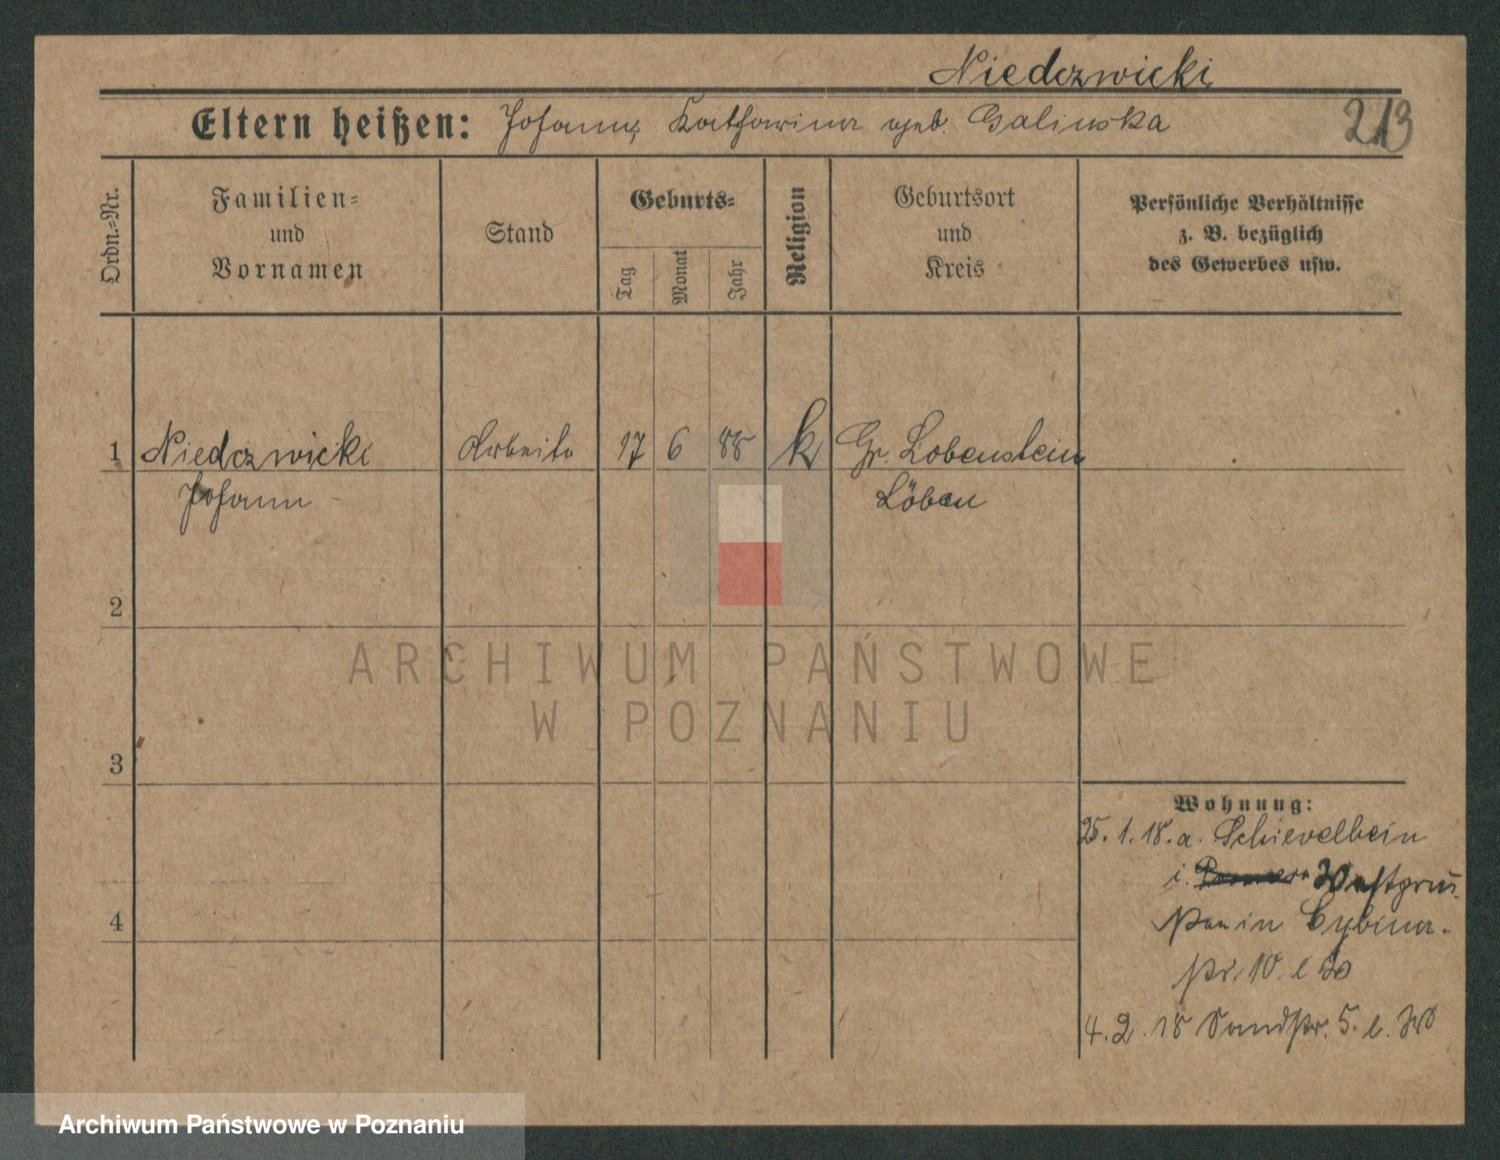 Niedczwicki
Eltern heißen: Johann, Katharina geb. Galinska
213
Ordn.-Nr.
Familien-
und
Vornamen
Stand
Geburts-
Tag
Monat
Jahr
Religion
Geburtsort
und
Kreis
Persönliche Verhältnisse
z. B. bezüglich
des Gewerbes usw.
1 Niedczwicki Arbeiter 17 6 88 k Gr. Lobenstein
Johann Löben
2
ARCHIWUM PAŃSTWOWE
W POZNANIU
3
Wohnung:
25. 1. 18. a. Schievelbein
i.
in Cybina-
str. 10. l
4
4. 2. 18 Sandstr. 5. l.
Archiwum Państwowe w Poznaniu